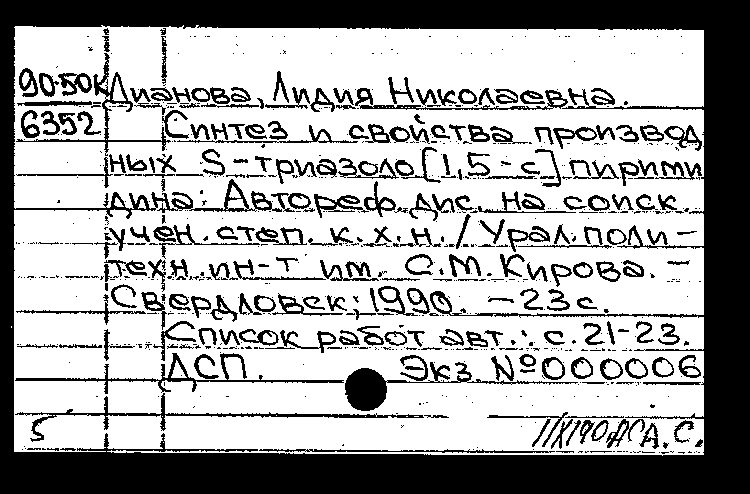 90-50к Дианова, Лидия Николаевна.
6352 Синтез и свойства производ
ных S-триазоло[1,5-с]пирими
дина: Автореф. дис. на соиск.
учен. степ. к.х.н. / Урал. поли-
техн. ин-т им. С.М. Кирова. -
Свердловск; 1990. - 23 с.
Список работ авт.: с. 21-23.
ДСП. Экз. №000006
5 А.С.